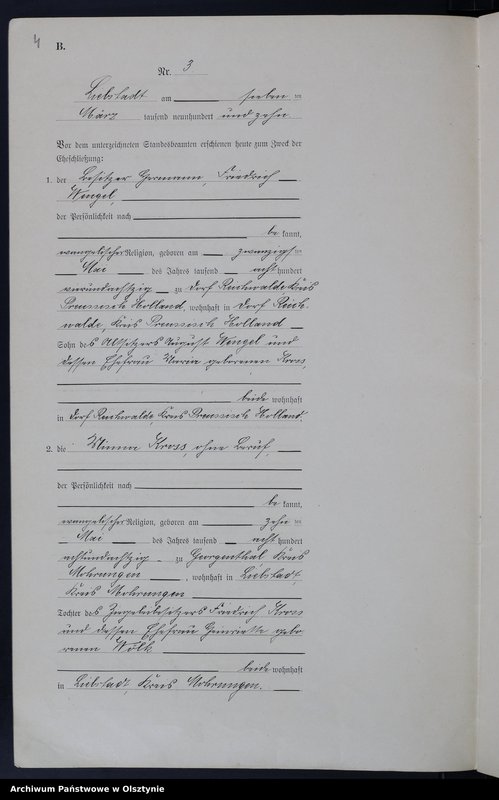 4
B.
Nr. 3
Liebstadt am sieben ten
März tausend neunhundert und zehn.
Vor dem unterzeichneten Standesbeamten erschienen heute zum Zweck der
Eheschließung:
1. der Besitzer Hermann, Friedrich
Wengel,
der Persönlichkeit nach
be kannt,
evangelischer Religion, geboren am zwanzigsten
Mai des Jahres tausend acht hundert
vierundachtzig zu Dorf Reichwalde Kreis
Preussisch Holland, wohnhaft in Dorf Reich
walde, Kreis Preussisch Holland
Sohn des Altsitzers August Wengel und
dessen Ehefrau Maria geborenen Kross,
beide wohnhaft
in Dorf Reichwalde, Kreis Preussisch Holland.
2. die Minna Kross, ohne Beruf,
der Persönlichkeit nach
be kannt,
evangelischer Religion, geboren am zehn ten
Mai des Jahres tausend acht hundert
achtundachtzig zu Georgenthal Kreis
Mohrungen, wohnhaft in Liebstadt
Kreis Mohrungen
Tochter des Ziegeleibesitzers Friedrich Kross
und dessen Ehefrau Henriette gebo
renen Wölk
beide wohnhaft
in Liebstadt, Kreis Mohrungen.
Archiwum Państwowe w Olsztynie